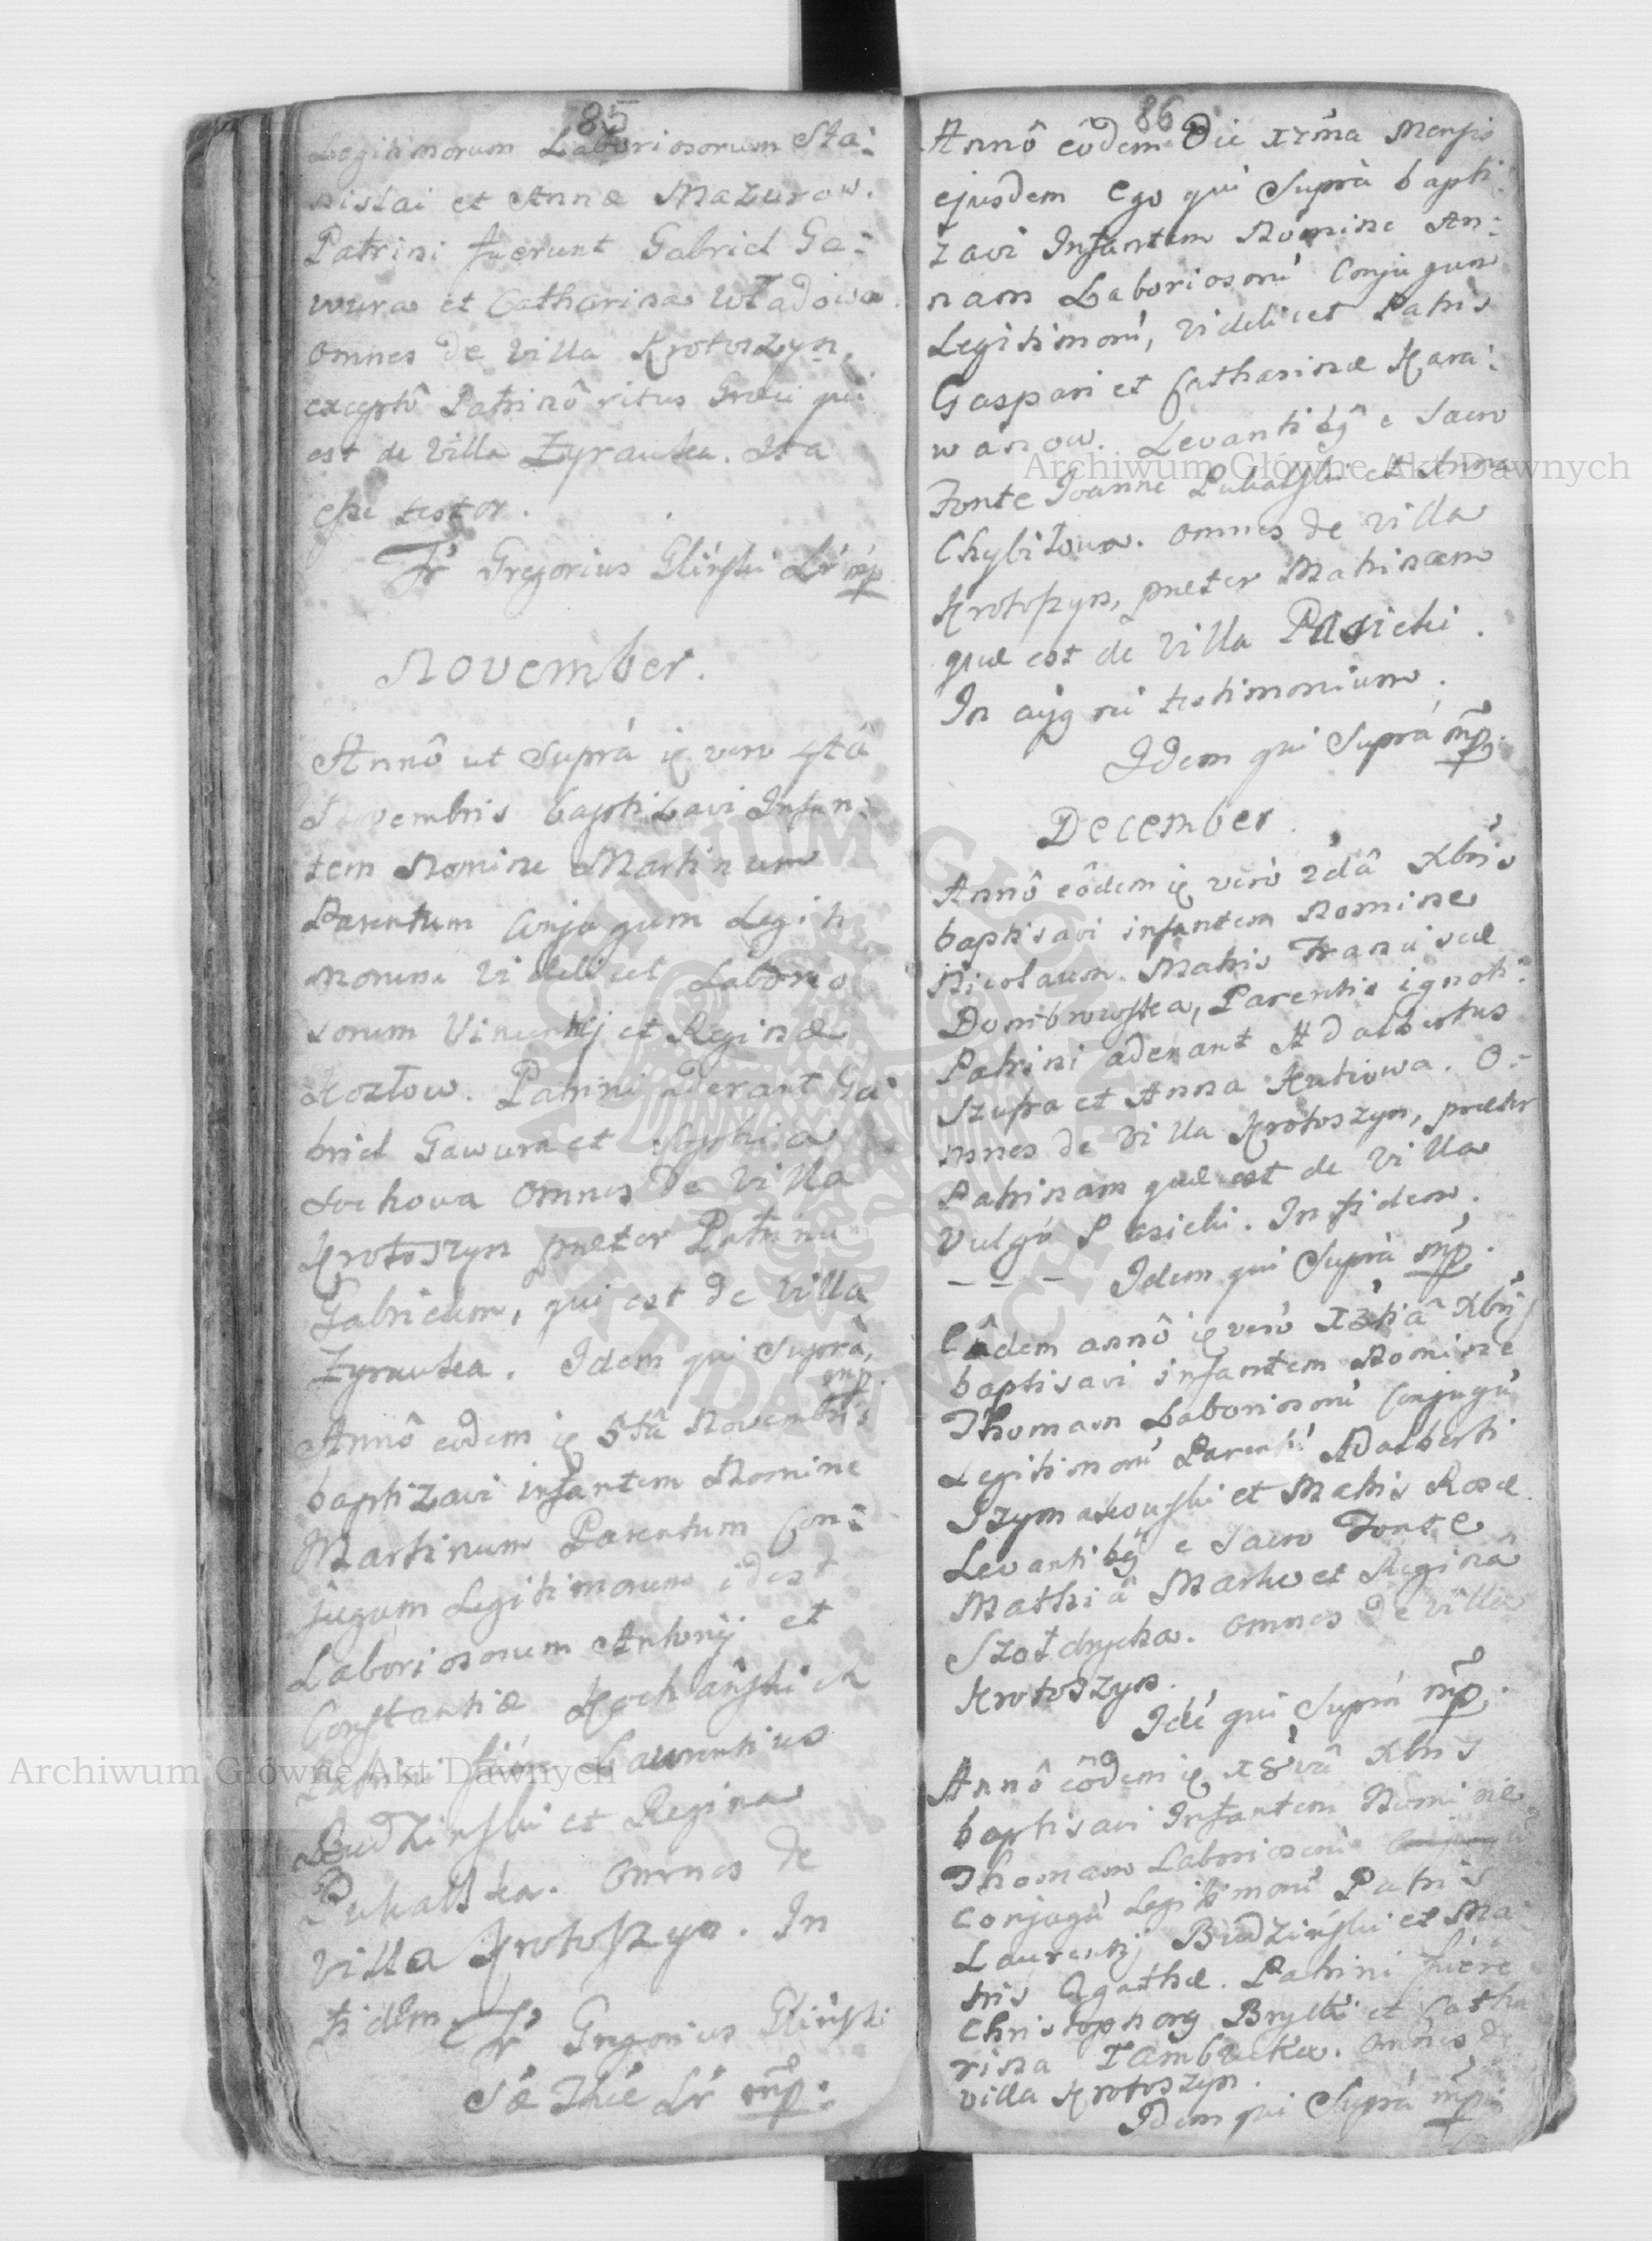 85
Legitimorum Laboriosorum Sta:
nislai et Annæ Mazurow.
Patrini fuerunt Gabriel Ga:
wura et Catharina Władowa.
omnes de Villa Krotoszyn,
exceptô Patrinô ritus Græci qui
est de Villa Zyrawka. Ita
esse testor.
Fr Gregorius Gliński Lr mp
November.
Annô ut Suprà 4tâ
Novembris baptizavi Infan:
tem Nomine Martinum
Parentum Conjugum Legiti
morum Videlicet Laborio
sorum Vincentij et Reginæ
Kozłow. Patrini aderant Ga
briel Gawura et Sophia
Sochowa omnes de Villa
Krotoszyn præter Patrinu
Gabrielem, qui est de Villa
Zyrawka. Idem qui Suprà,
mp.
Annô eodem 5tâ Novembris
baptizavi infantem Nomine
Martinum Parentum Con:
jugum Legitimorum idest
Laboriosorum Antonij et
Constantiæ Kochańskich
Patrini fuere Laurentius
Budzinski et Regina
Puhalska. Omnes de
Villa Krotoszyn. In
fidem Fr Gregorius Gliński
Sæ Thiæ Lr mp:
86
Annô eôdem Die Mensis
ejusdem Ego qui Suprà bapti
zavi Infantem Nomine An:
nam Laboriosorú Conjugum
Legitimorú, Videlicet Patris
Gaspari et Catharinæ Kara:
wanow. Levantibq e Sacro
Fonte Joanne Puhalski et Anna
Chybiłowa. omnes de Villa
Krotoszyn, præter Matrinam
quæ est de Villa Pasieki.
In testimonium.
Idem qui Suprà mp.
December.
Annô eôdem verò 2dâ Xbris
baptisavi infantem Nomine
Nicolaum. Matris Francisæ
Dombrowska, Parentis ignoti:
Patrini aderant Adalbertus
Szupa et Anna Kutiowa. O:
mnes de Villa Krotoszyn, præter
Patrinam quæ est de Villa
Vulgò Pasieki. In fidem.
- - - Idem qui Suprà mp.
Eôdem annô verò Xbris
baptisavi infantem Nomine
Thomam Laboriosorú Conjugú
Legitimorú Parentú Adalberti
Szymakowski et Matris Rosæ.
Levantibq e Sacro Fonte
Mathiâ Marko et Reginâ
Szotdrycka. omnes de Villa
Krotoszyn.
Idé qui Suprà mp.
Annô eôdem Xbris
baptisavi Infantem Nomine
Thomam Laboriosorú
Conjugú Legitimorú Patris
Laurentij Budzinski et Ma
tris Agathæ. Patrini fuere
Christophorq Brylki et Catha
rina Zambrzka. omnes de
Villa Krotoszyn.
Idem qui Suprà mp:
Archiwum Główne Akt Dawnych
Archiwum Główne Akt Dawnych
ARCHIWUM GŁÓWNE
AKT DAWNYCH